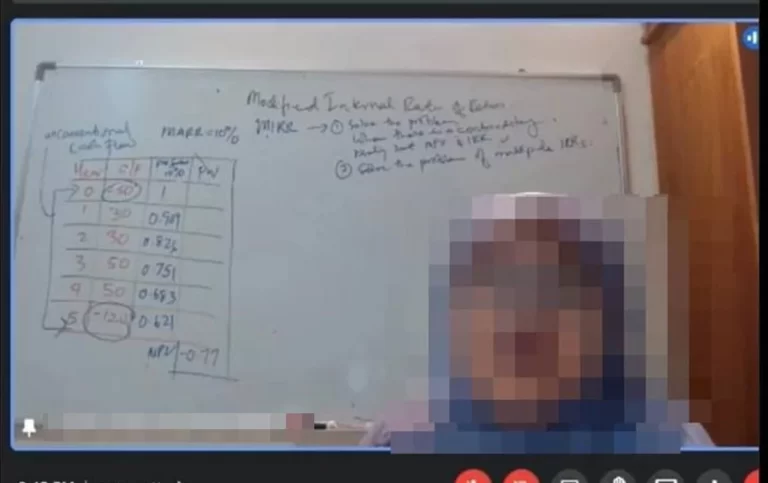 Modified Internal Rate of Return
unconventional
cash flow
MARR = 10%
MIRR → ① Solve the problem
when there is a contradictory
result b/w NPV & IRR
② Solve the problem of multiple IRRs.
Year C/F 10% PV
0 -50 1
1 30 0.909
2 30 0.826
3 50 0.751
4 50 0.683
5 0.621
NPV -0.77